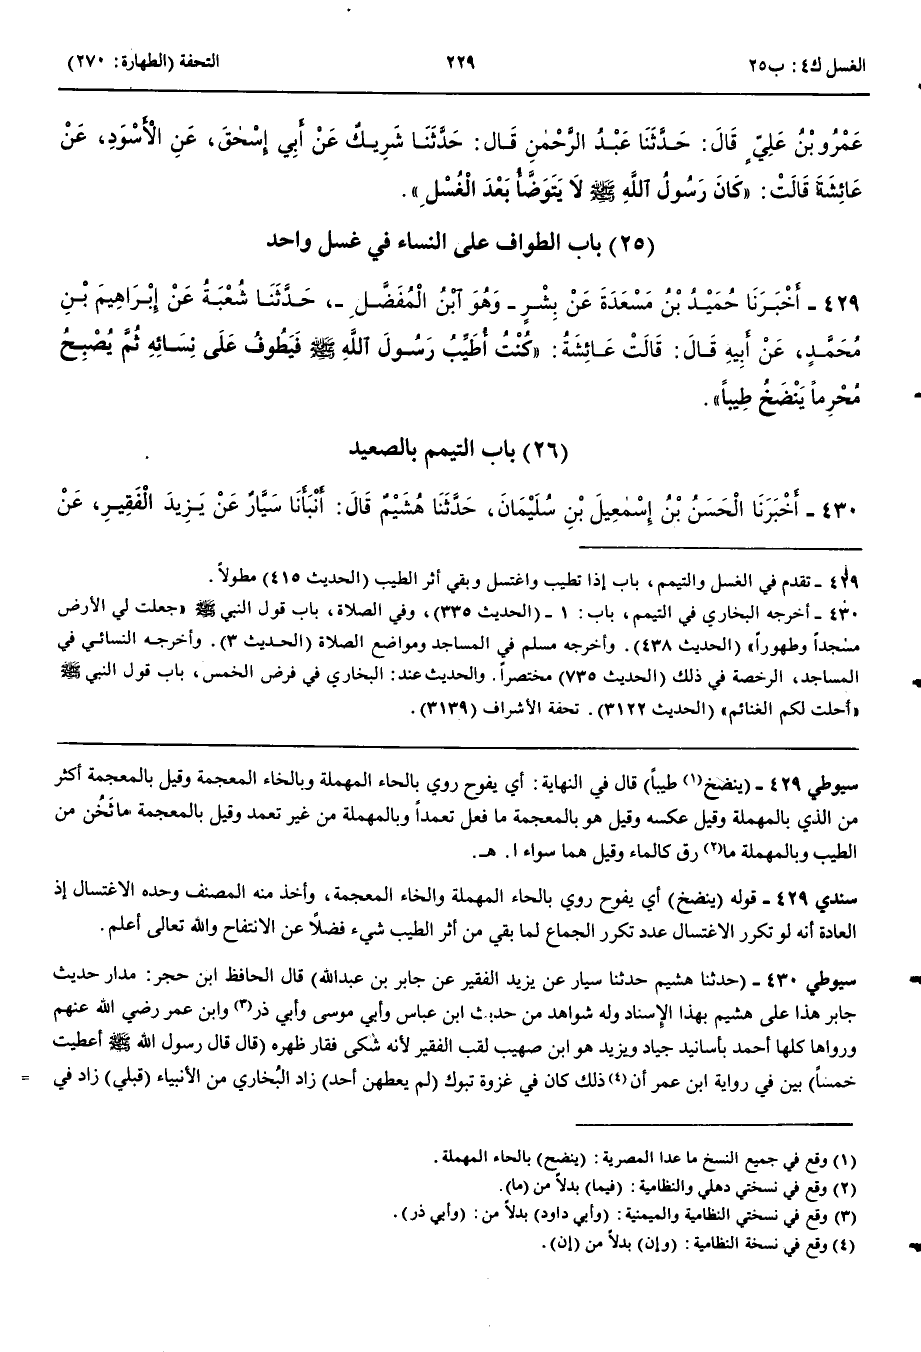 الغسل ك٤: ب٢٥ ٢٢٩ التحفة (الطهارة: ٢٧٠)
عَمْرُو بْنُ عَلِيٍّ قَالَ: حَدَّثَنَا عَبْدُ الرَّحْمٰنِ قَال: حَدَّثَنَا شَرِيكٌ عَنْ أَبِي إِسْحٰقَ، عَنِ الْأَسْوَدِ، عَنْ
عَائِشَةَ قَالَتْ: «كَانَ رَسُولُ اللَّهِ ﷺ لَا يَتَوَضَّأُ بَعْدَ الْغُسْلِ».
(٢٥) باب الطواف على النساء في غسل واحد
٤٢٩ ـ أَخْبَرَنَا حُمَيْدُ بْنُ مَسْعَدَةَ عَنْ بِشْرٍ ـ وَهُوَ ٱبْنُ الْمُفَضَّلِ ـ، حَدَّثَنَا شُعْبَةُ عَنْ إِبْرَاهِيمَ بْنِ
مُحَمَّدٍ، عَنْ أَبِيهِ قَالَ: قَالَتْ عَائِشَةُ: «كُنْتُ أُطَيِّبُ رَسُولَ ٱللَّهِ ﷺ فَيَطُوفُ عَلَى نِسَائِهِ ثُمَّ يُصْبِحُ
مُحْرِماً يَنْضَخُ طِيباً».
(٢٦) باب التيمم بالصعيد
٤٣٠ ـ أَخْبَرَنَا الْحَسَنُ بْنُ إِسْمٰعِيلَ بْنِ سُلَيْمَانَ، حَدَّثَنَا هُشَيْمٌ قَالَ: أَنْبَأَنَا سَيَّارٌ عَنْ يَزِيدَ الْفَقِيرِ، عَنْ
٤٢٩ ـ تقدم في الغسل والتيمم، باب إذا تطيب واغتسل وبقي أثر الطيب (الحديث ٤١٥) مطولاً.
٤٣٠ ـ أخرجه البخاري في التيمم، باب: ١ ـ (الحديث ٣٣٥)، وفي الصلاة، باب قول النبي ﷺ «جعلت لي الأرض
مسجداً وطهوراً» (الحديث ٤٣٨). وأخرجه مسلم في المساجد ومواضع الصلاة (الحديث ٣). وأخرجه النسائي في
المساجد، الرخصة في ذلك (الحديث ٧٣٥) مختصراً. والحديث عند: البخاري في فرض الخمس، باب قول النبي ﷺ
«أحلت لكم الغنائم» (الحديث ٣١٢٢). تحفة الأشراف (٣١٣٩).
سيوطي ٤٢٩ ـ (ينضخ(١) طيباً) قال في النهاية: أي يفوح روي بالحاء المهملة وبالخاء المعجمة وقيل بالمعجمة أكثر
من الذي بالمهملة وقيل عكسه وقيل هو بالمعجمة ما فعل تعمداً وبالمهملة من غير تعمد وقيل بالمعجمة ما ثَخُن من
الطيب وبالمهملة ما(٢) رق كالماء وقيل هما سواء ا. هـ.
سندي ٤٢٩ ـ قوله (ينضخ) أي يفوح روي بالحاء المهملة والخاء المعجمة، وأخذ منه المصنف وحده الاغتسال إذ
العادة أنه لو تكرر الاغتسال عدد تكرر الجماع لما بقي من أثر الطيب شيء فضلاً عن الانتفاح والله تعالى أعلم.
سيوطي ٤٣٠ ـ (حدثنا هشيم حدثنا سيار عن يزيد الفقير عن جابر بن عبدالله) قال الحافظ ابن حجر: مدار حديث
جابر هذا على هشيم بهذا الإسناد وله شواهد من حديث ابن عباس وأبي موسى وأبي ذر(٣) وابن عمر رضي الله عنهم
ورواها كلها أحمد بأسانيد جياد ويزيد هو ابن صهيب لقب الفقير لأنه شكى فقار ظهره (قال قال رسول الله ﷺ أعطيت
خمساً) بين في رواية ابن عمر أن(٤) ذلك كان في غزوة تبوك (لم يعطهن أحد) زاد البُخاري من الأنبياء (قبلي) زاد في =
(١) وقع في جميع النسخ ما عدا المصرية: (ينضح) بالحاء المهملة.
(٢) وقع في نسختي دهلي والنظامية: (فيما) بدلاً من (ما).
(٣) وقع في نسختي النظامية والميمنية: (وأبي داود) بدلاً من: (وأبي ذر).
(٤) وقع في نسخة النظامية: (وإن) بدلاً من (إن).